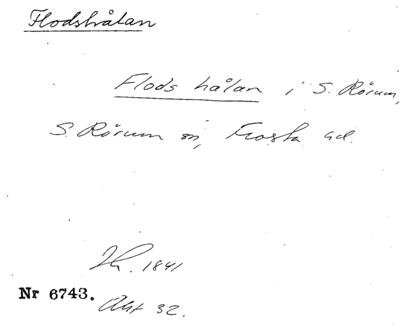 Flodshålan
Flods hålan i S. Rörum,
S. Rörum sn, Frosta hd.
1841
Nr 6743.
Akt 32.